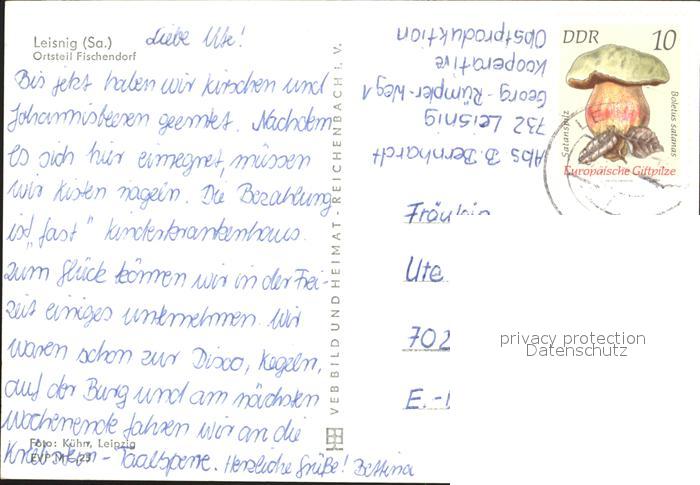 Leisnig (Sa.)
Ortsteil Fischendorf
Liebe Ute!
Bis jetzt haben wir Kirschen und
Johannisbeeren geerntet. Nachdem
es sich hier einregnet, müssen
wir Kisten nageln. Die Bezahlung
ist "fast" Kinderkrankenhaus.
Zum Glück können wir in der Frei-
zeit einiges unternehmen. Wir
waren schon zur Disco, Kegeln,
auf der Burg und am nächsten
Wochenende fahren wir an die
Kriebstein-Taalsperre. Herzliche Grüße! Bettina
Foto: Kühn, Leipzig
VEB BILD UND HEIMAT · REICHENBACH i. V.
Abs B. Bernhardt
732 Leisnig
Georg-Rümpler-Weg 1
Kooperative
Obstproduktion
DDR 10
Satanspilz
Boletus satanas
Europäische Giftpilze
Fräulein
Ute
702
E.-
privacy protection
Datenschutz